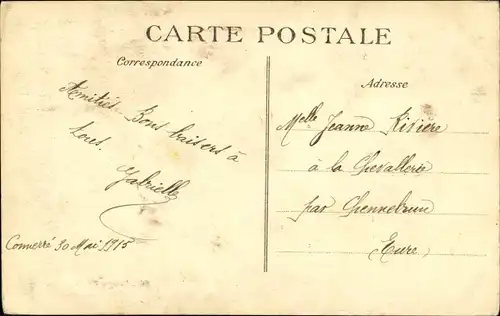 CARTE POSTALE
Correspondance
Amitiés Bons baisers à
tous.
Gabrielle
Connerré 30 Mai 1915
Adresse
Melle Jeanne Rivière
à la Chevallerie
par Chennebrun
Eure